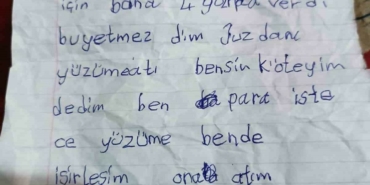 için bana 4 yarpa verdi
buyetmez dim Juzdanı
yüzümeatı bensin köteyim
dedim ben para iste
ce yüzüme bende
isirlesim ona atım